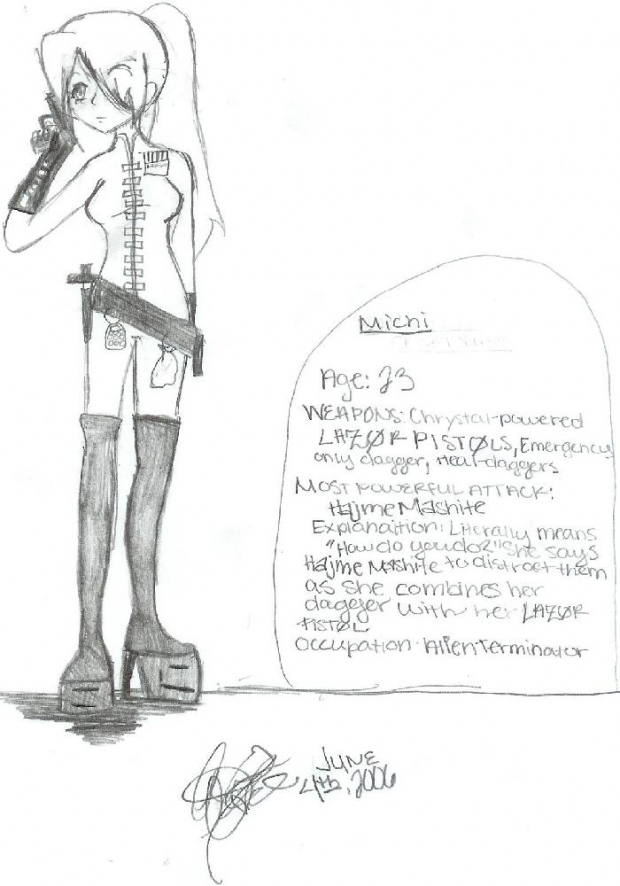 Michi
Age: 23
WEAPONS: Chrystal-powered
LAZØR PISTØLS, Emergency
only dagger, Heal-daggers
MOST POWERFUL ATTACK:
Hajme Mashite
Explanaition: Literally means
"How do you do?" She says
Hajme Mashite to distract them
as she combines her
dagger with her LAZØR
PISTØL
Occupation: Alien Terminator
JUNE
4th, 2006